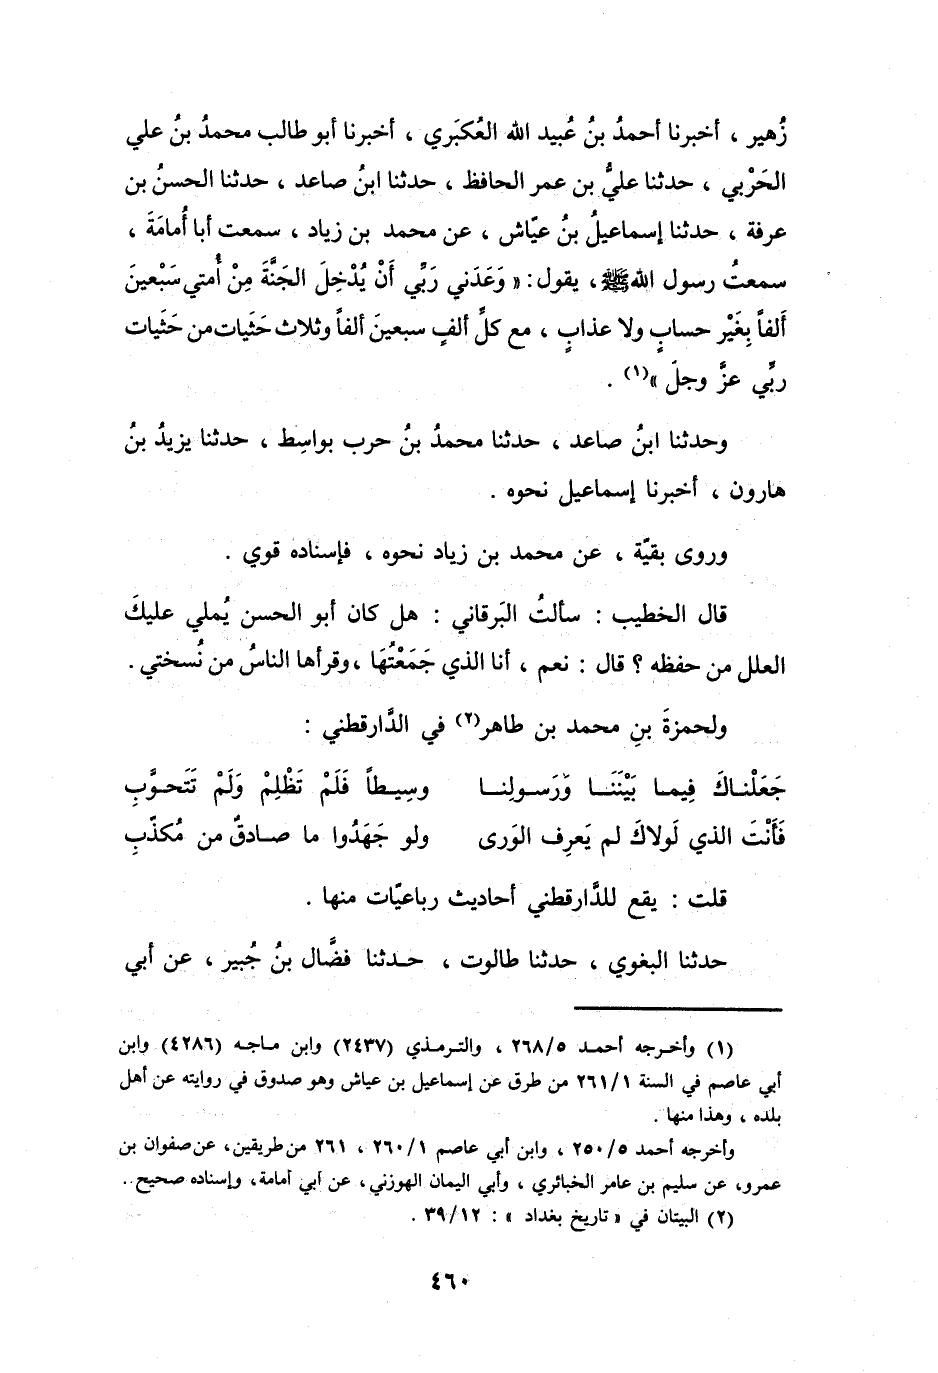 زُهير ، أخبرنا أحمدُ بنُ عُبيد الله العُكبَري ، أخبرنا أبو طالب محمدُ بنُ علي
الحَرْبي ، حدثنا عليُّ بن عمر الحافظ ، حدثنا ابنُ صاعد ، حدثنا الحسنُ بن
عرفة ، حدثنا إسماعيلُ بنُ عيّاش ، عن محمد بن زياد ، سمعت أبا أُمامَةَ ،
سمعتُ رسول الله ﷺ ، يقول : « وَعَدَني رَبِّي أَنْ يُدْخِلَ الجَنَّةَ مِنْ أُمتي سَبْعينَ
أَلفاً بِغَيْر حسابٍ ولا عذابٍ ، مع كلِّ ألفٍ سبعينَ ألفاً وثلاث حَثَيات من حَثَيات
ربِّي عزَّ وجلَّ »(١) .
وحدثنا ابنُ صاعد ، حدثنا محمدُ بنُ حرب بواسِط ، حدثنا يزيدُ بنُ
هارون ، أخبرنا إسماعيل نحوه .
وروى بقيّة ، عن محمد بن زياد نحوه ، فإسناده قوي .
قال الخطيب : سألتُ البَرقاني : هل كان أبو الحسن يُملي عليكَ
العلل من حفظه ؟ قال : نعم ، أنا الذي جَمَعْتُهَا ، وقرأها الناسُ من نُسختي .
ولحمزةَ بنِ محمد بن طاهر(٢) في الدَّارقطني :
جَعَلْنـاكَ فِيمـا بَيْنَنَـا وَرَسـولِنـا وسِيـطاً فَلَمْ تَظْلِمْ وَلَمْ تَتَحـوَّبِ
فَأَنْتَ الذي لَولاكَ لم يَعرِف الوَرى ولو جَهَدُوا ما صـادقٌ من مُكذّبِ
قلت : يقع للدَّارقطني أحاديث رباعيّات منها .
حدثنا البغوي ، حدثنا طالوت ، حـدثنا فضَّال بنُ جُبير ، عن أبي
(١) وأخـرجه أحمـد ٢٦٨/٥ ، والتـرمـذي (٢٤٣٧) وابن مـاجـه (٤٢٨٦) وابن
أبي عاصم في السنة ٢٦١/١ من طرق عن إسماعيل بن عياش وهو صدوق في روايته عن أهل
بلده ، وهذا منها .
وأخرجه أحمد ٢٥٠/٥ ، وابن أبي عاصم ٢٦٠/١ ، ٢٦١ من طريقين، عن صفوان بن
عمرو، عن سليم بن عامر الخبائري ، وأبي اليمان الهوزني، عن أبي أمامة، وإسناده صحيح . .
(٢) البيتان في « تاريخ بغداد » : ٣٩/١٢ .
٤٦٠